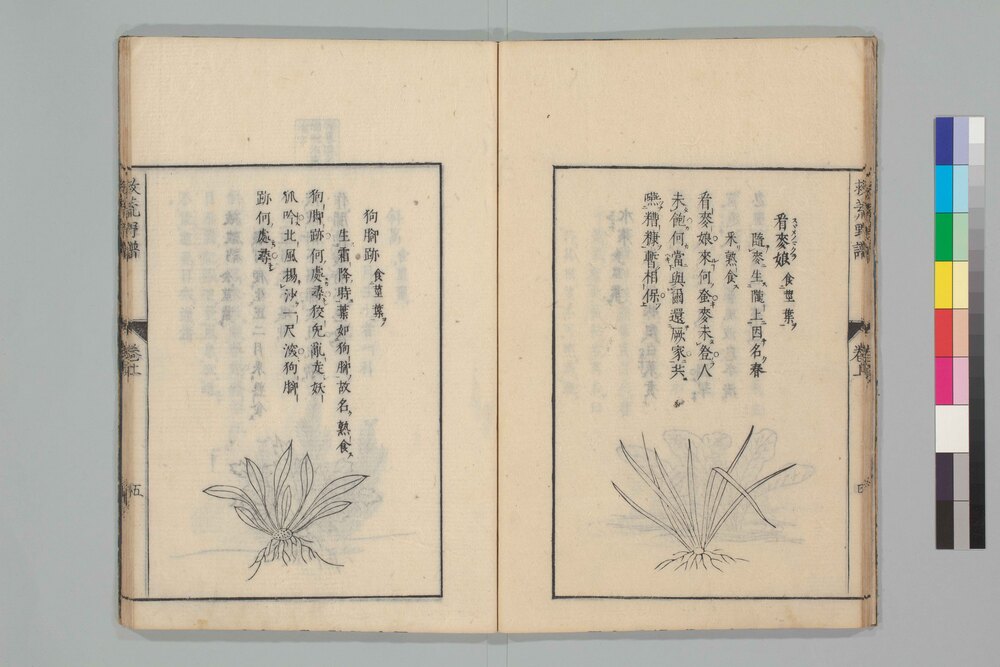 救荒野譜
看麥娘 食莖葉
スヾメノマクラ
隨麥生隴上因名春
釆熟食
看麥娘來何蚤麥未登人
未飽何當與爾還厥家共
嚥糟糠暫相保
狗脚跡 食莖葉
生霜降時葉如狗脚故名熟食
狗脚跡何處尋狡兔亂走妖
狐吟北風揚沙一尺深狗脚
跡何處尋
救荒野譜
五